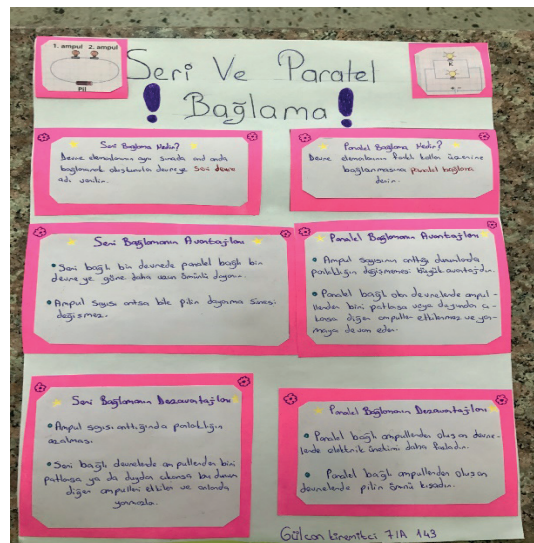 1. ampul 2. ampul
Pil
K
Seri Ve Paralel
! Bağlama !
Seri Bağlama Nedir?
Devre elemanlarının aynı sırada ard arda
bağlanarak oluşturulan devreye Seri devre
adı verilir.
Paralel Bağlama Nedir?
Devre elemanlarının farklı kollar üzerine
bağlanmasına paralel bağlama
denir.
Seri Bağlamanın Avantajları
• Seri bağlı bir devrede paralel bağlı bir
devreye göre daha uzun ömürlü dayanır.
• Ampul sayısı artsa bile pilin dayanma süresi
değişmez.
Paralel Bağlamanın Avantajları
• Ampul sayısının arttığı durumlarda
parlaklığın değişmemesi büyük avantajdır.
• Paralel bağlı olan devrelerde ampul-
lerden biri patlarsa veya duyundan çı-
karsa diğer ampuller etkilenmez ve yan-
maya devam eder.
Seri Bağlamanın Dezavantajları
• Ampul sayısı arttığında parlaklığın
azalması.
• Seri bağlı devrelerde ampullerden biri
patlarsa ya da duydan çıkarsa bu durum
diğer ampulleri etkiler ve onlarda
yanmazla.
Paralel Bağlamanın Dezavantajları
• Paralel bağlı ampullerden oluşan devre-
lerde elektrik üretimi daha fazladır.
• Paralel bağlı ampullerden oluşan
devrelerde pilin ömrü kısadır.
7/A 143